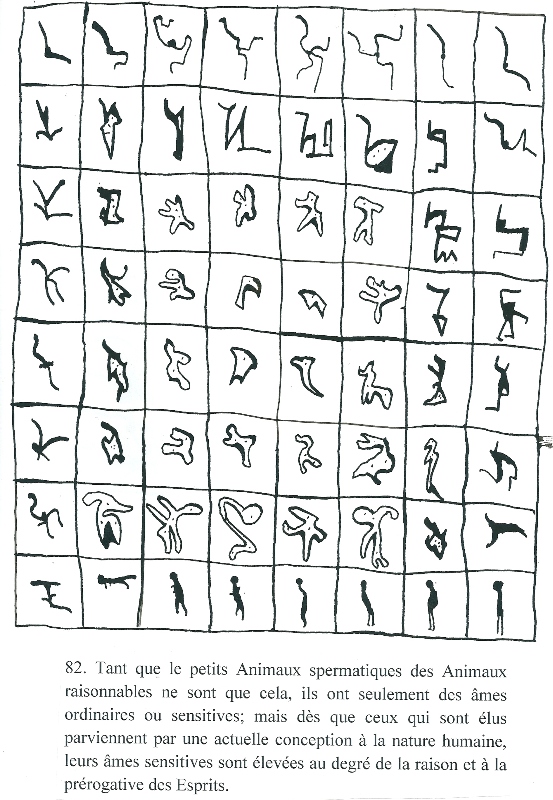 82. Tant que le petits Animaux spermatiques des Animaux
raisonnables ne sont que cela, ils ont seulement des âmes
ordinaires ou sensitives; mais dès que ceux qui sont élus
parviennent par une actuelle conception à la nature humaine,
leurs âmes sensitives sont élevées au degré de la raison et à la
prérogative des Esprits.